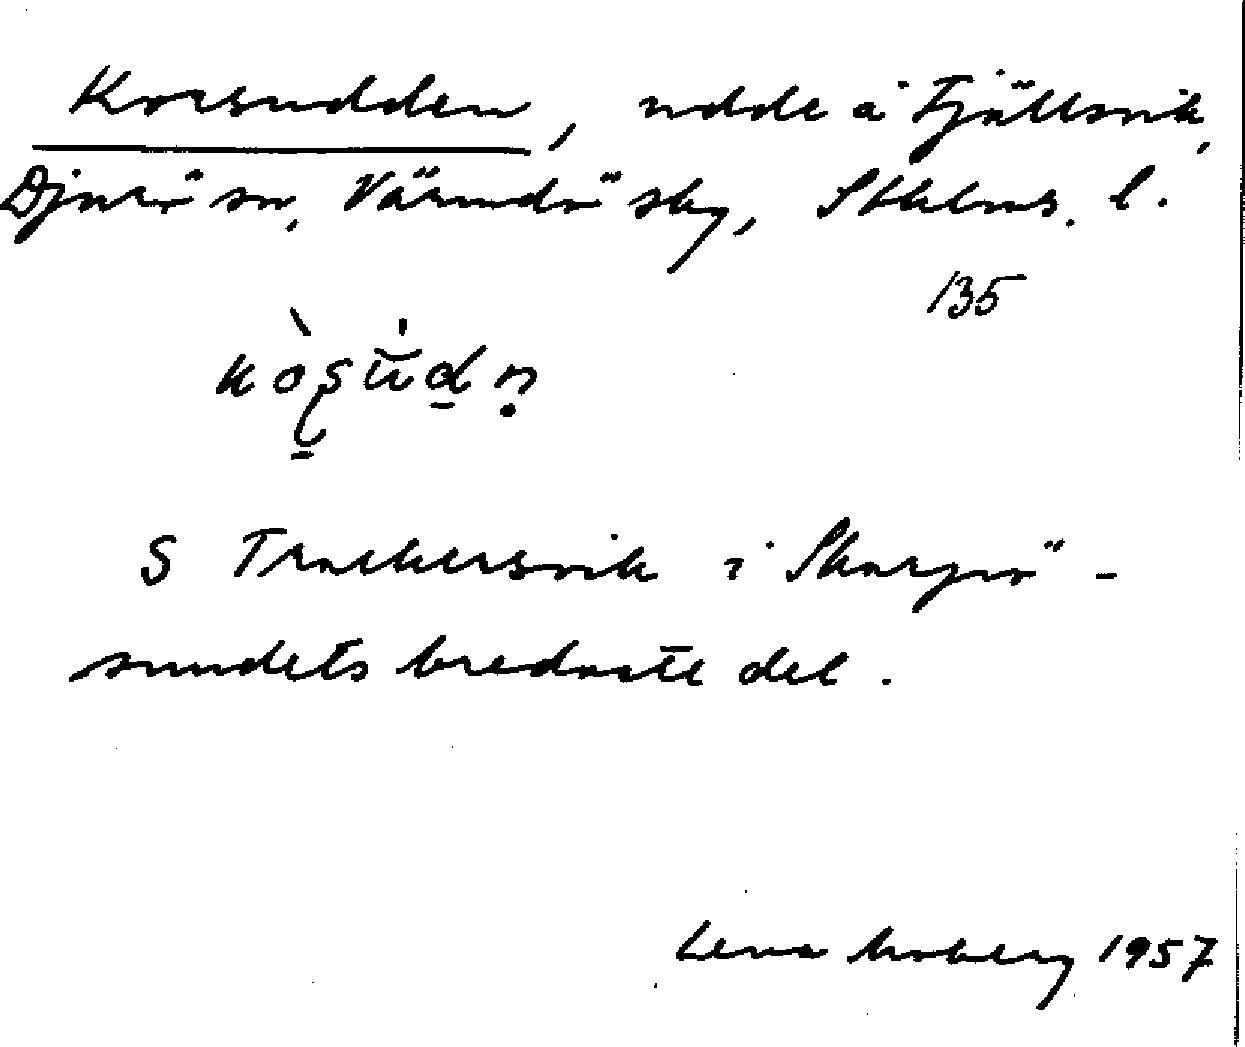 Korsudden, udde å Fjällsvik,
Djurö sn, Värmdö skg, Sthlms. l.
135
S Trackersvik i Skarpö-
sundets bredaste del.
Lena Moberg 1957